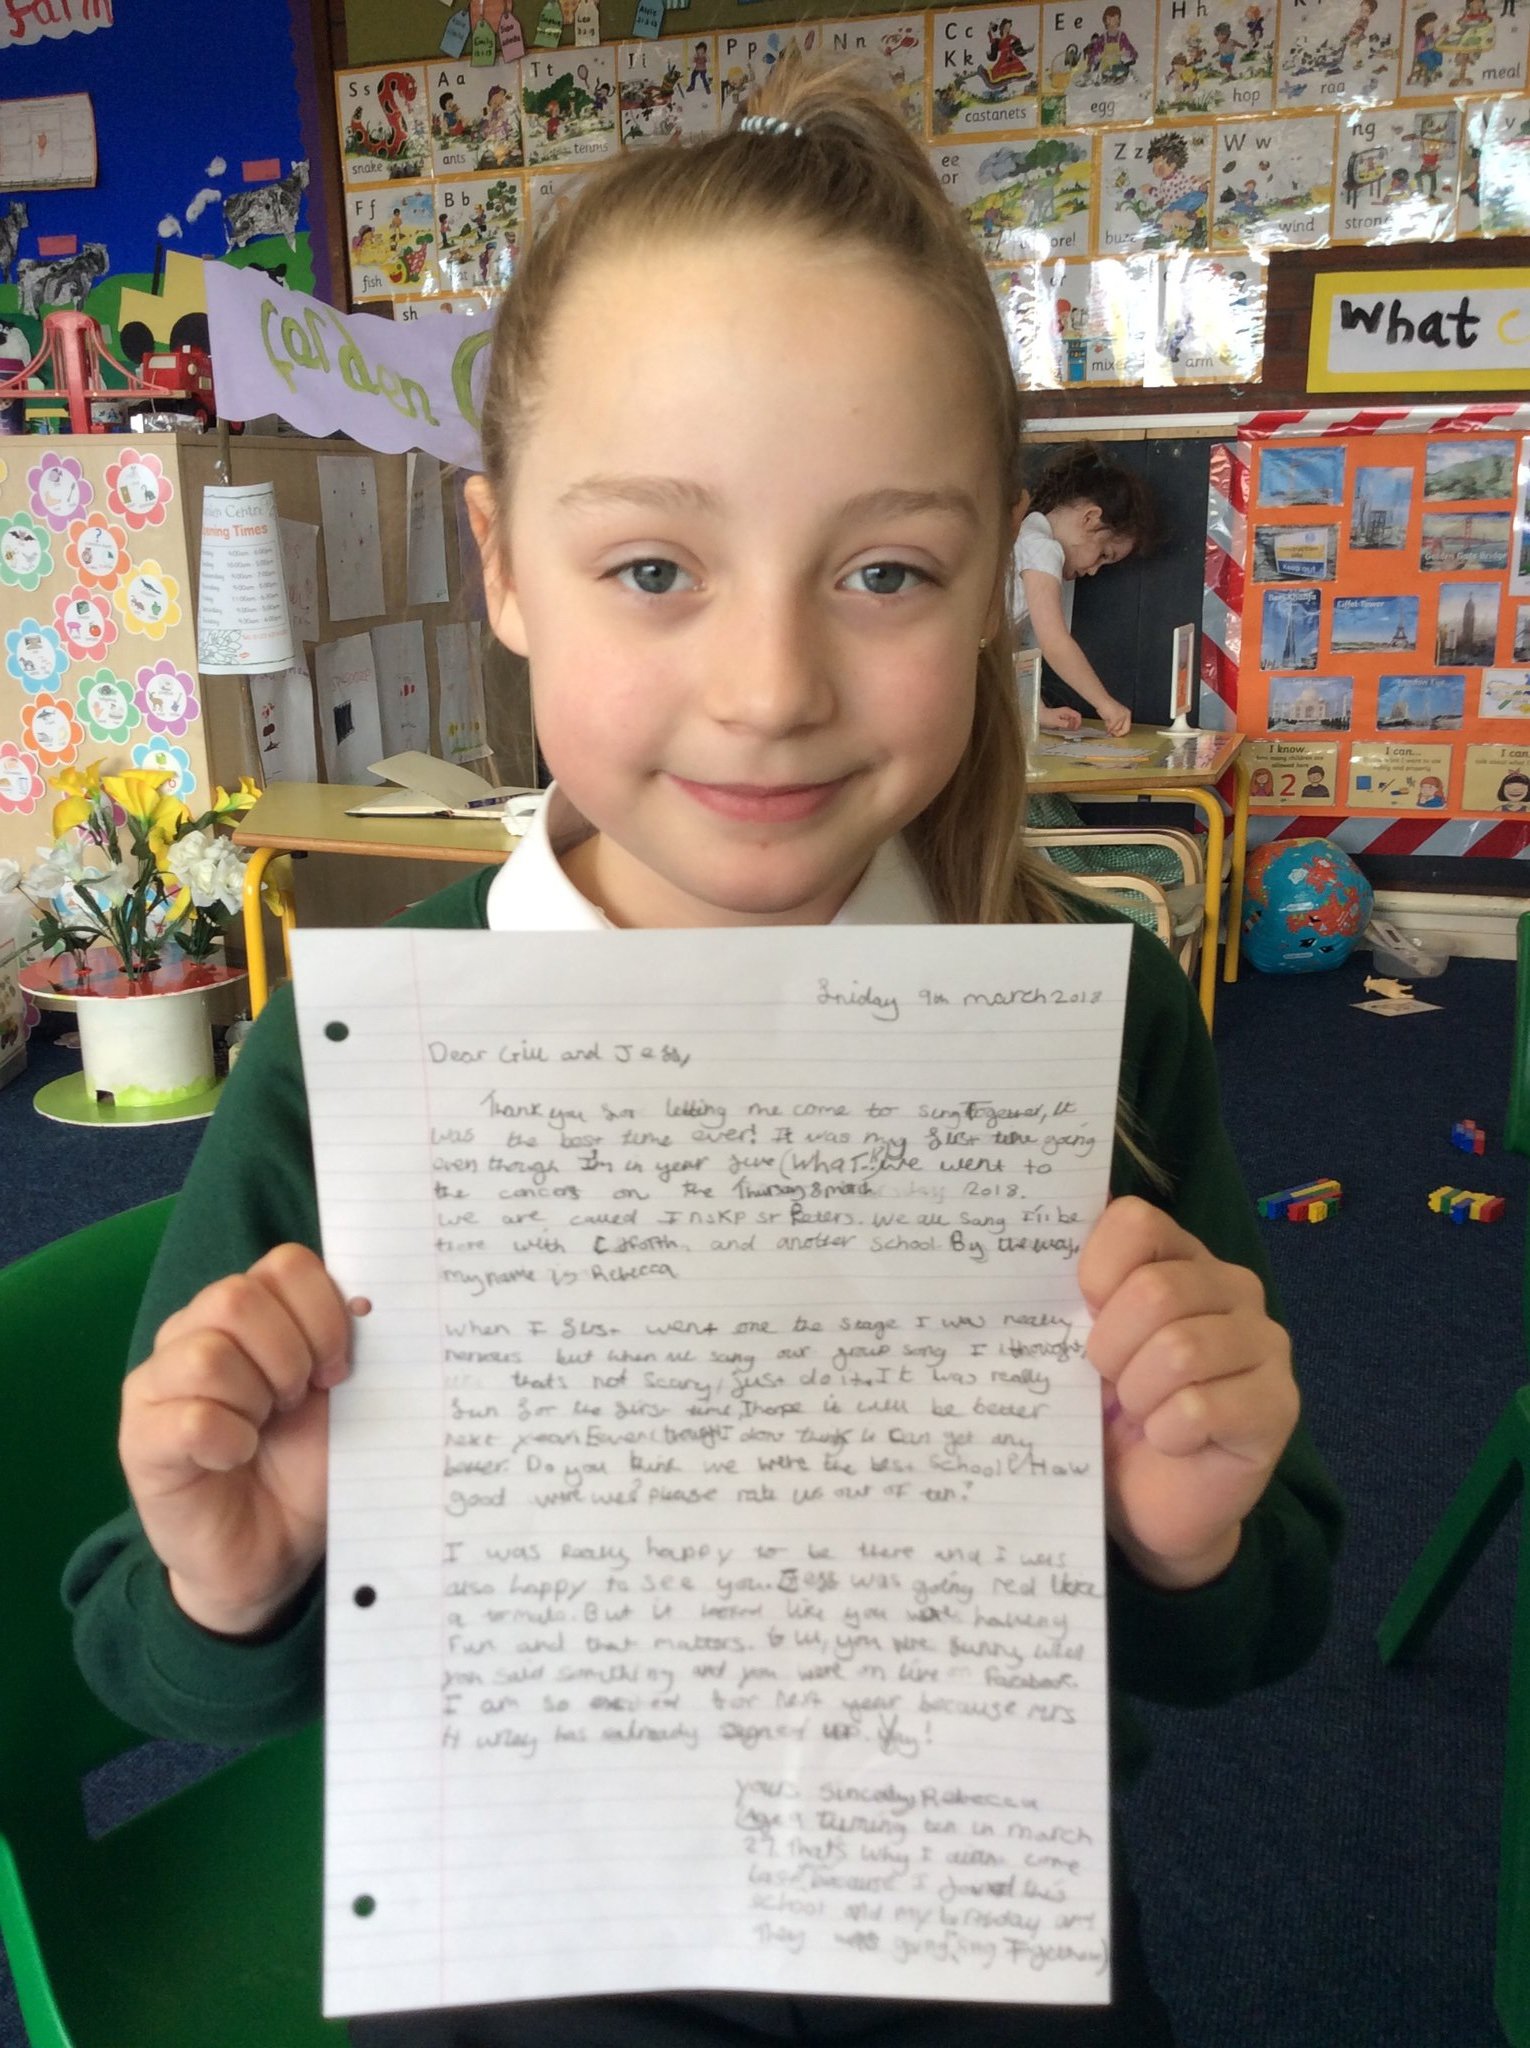 farm
Emily
Sophie
Leo
Alfie
Ss
snake
Aa
ants
Tt
tennis
Ii
Pp
Nn
Cc
Kk
castanets
Ee
egg
Hh
hop
raa
meal
Ff
fish
Bb
ai
ee
or
Zz
buzz
Ww
wind
ng
strong
v
sh
or
mixer
arm
garden C
What c
Garden Centre
Opening Times
Construction
Site
Keep out
Golden Gate Bridge
Burj Khalifa
Eiffel Tower
Taj Mahal
London Eye
I know...
how many children are
allowed here
2
I can...
I can
talk about what I
Friday 9th march 2018
Dear Gill and Jess,
Thank you for letting me come to sing Together, it
was the best time ever! It was my first time going
even though I'm in year five (WHAT!?) we went to
the concert on the Thursday 8 march 2018.
we are called Inskp st Peters. we all sang I'll be
there with and another school. By the way,
my name is Rebecca
When I first went one the stage I was really
nervous but when we sang our group song I thought,
thats not scary, just do it. It was really
fun for the first time, I hope it will be better
next year. Eaven though I dont think it can get any
better. Do you think we were the best school? How
good were we? please rate us out of ten?
I was really happy to be there and I was
also happy to see you. Jess was going red like
a tomato. But it looked like you were haveing
fun and that matters. you were funny when
you said something and you were on live on Facebook.
I am so excited for next year because mrs
has already signed up. Yay!
yours sincerly, Rebecca
(Age 9 turning ten in march
27. That's why I come
last because I joined this
school and my birthday
They going sing Together)